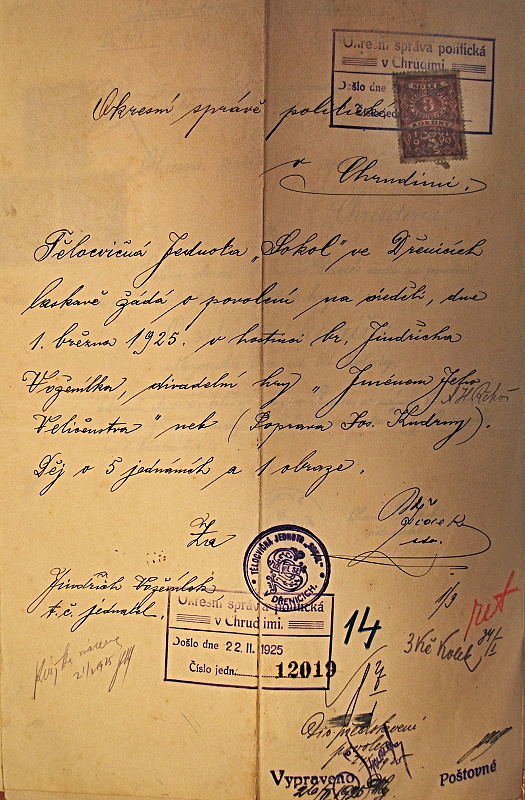 Okresní správa politická
v Chrudimi.
Došlo dne
Číslo jedn.
3
Okresní správě politické
v Chrudimi.
Tělocvičná Jednota „Sokol" ve Dřenicích
laskavě žádá o povolení na neděli, dne
1. března 1925. v hostinci br. Jindřicha
Voženílka, divadelní hry „Jménem Jeho
Veličenstva" neb (Poprava Jos. Kudrny).
Děj o 5 jednáních a 1 obraze.
Za
TĚLOCVIČNÁ JEDNOTA „SOKOL"
V DŘENICÍCH.
Jindřich Voženílek
t. č. jednatel.
Okresní správa politická
v Chrudimi.
Došlo dne 22.II.1925
Číslo jedn. 12019
14
ret
3 Kč Kolek
Vypraveno
Poštovné